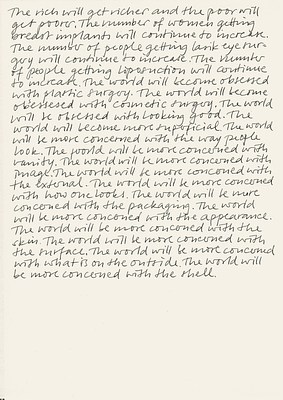 The rich will get richer and the poor will
get poorer. The number of women getting
breast implants will continue to increase.
The number of people getting lasik eye sur-
gery will continue to increase. The number
of people getting liposuction will continue
to increase. The world will become obsessed
with plastic surgery. The world will become
obsessed with cosmetic surgery. The world
will be obsessed with looking good. The
world will become more superficial. The world
will be more concerned with the way people
look. The world will be more concerned with
vanity. The world will be more concerned with
image. The world will be more concerned with
the external. The world will be more concerned
with how one looks. The world will be more
concerned with the packaging. The world
will be more concerned with the appearance.
The world will be more concerned with the
skin. The world will be more concerned with
the surface. The world will be more concerned
with what is on the outside. The world will
be more concerned with the shell.